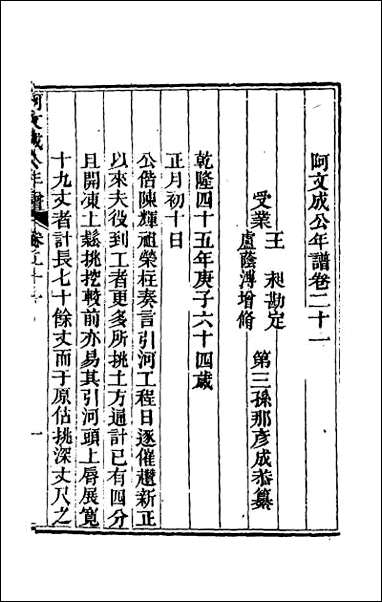 阿文成公年譜卷二十一
受業 王昶勘定 盧蔭溥增脩 第三孫那彥成恭纂
乾隆四十五年庚子六十四歲
正月初十日
公偕陳輝祖榮柱奏言引河工程日逐催趲新正
以來夫役到工者更多所挑土方通計已有四分
且開凍土鬆挑挖較前亦易其引河頭上脣展寬
十九丈者計長七十餘丈而于原估挑深丈尺之
阿文成公年譜 卷二十一 一